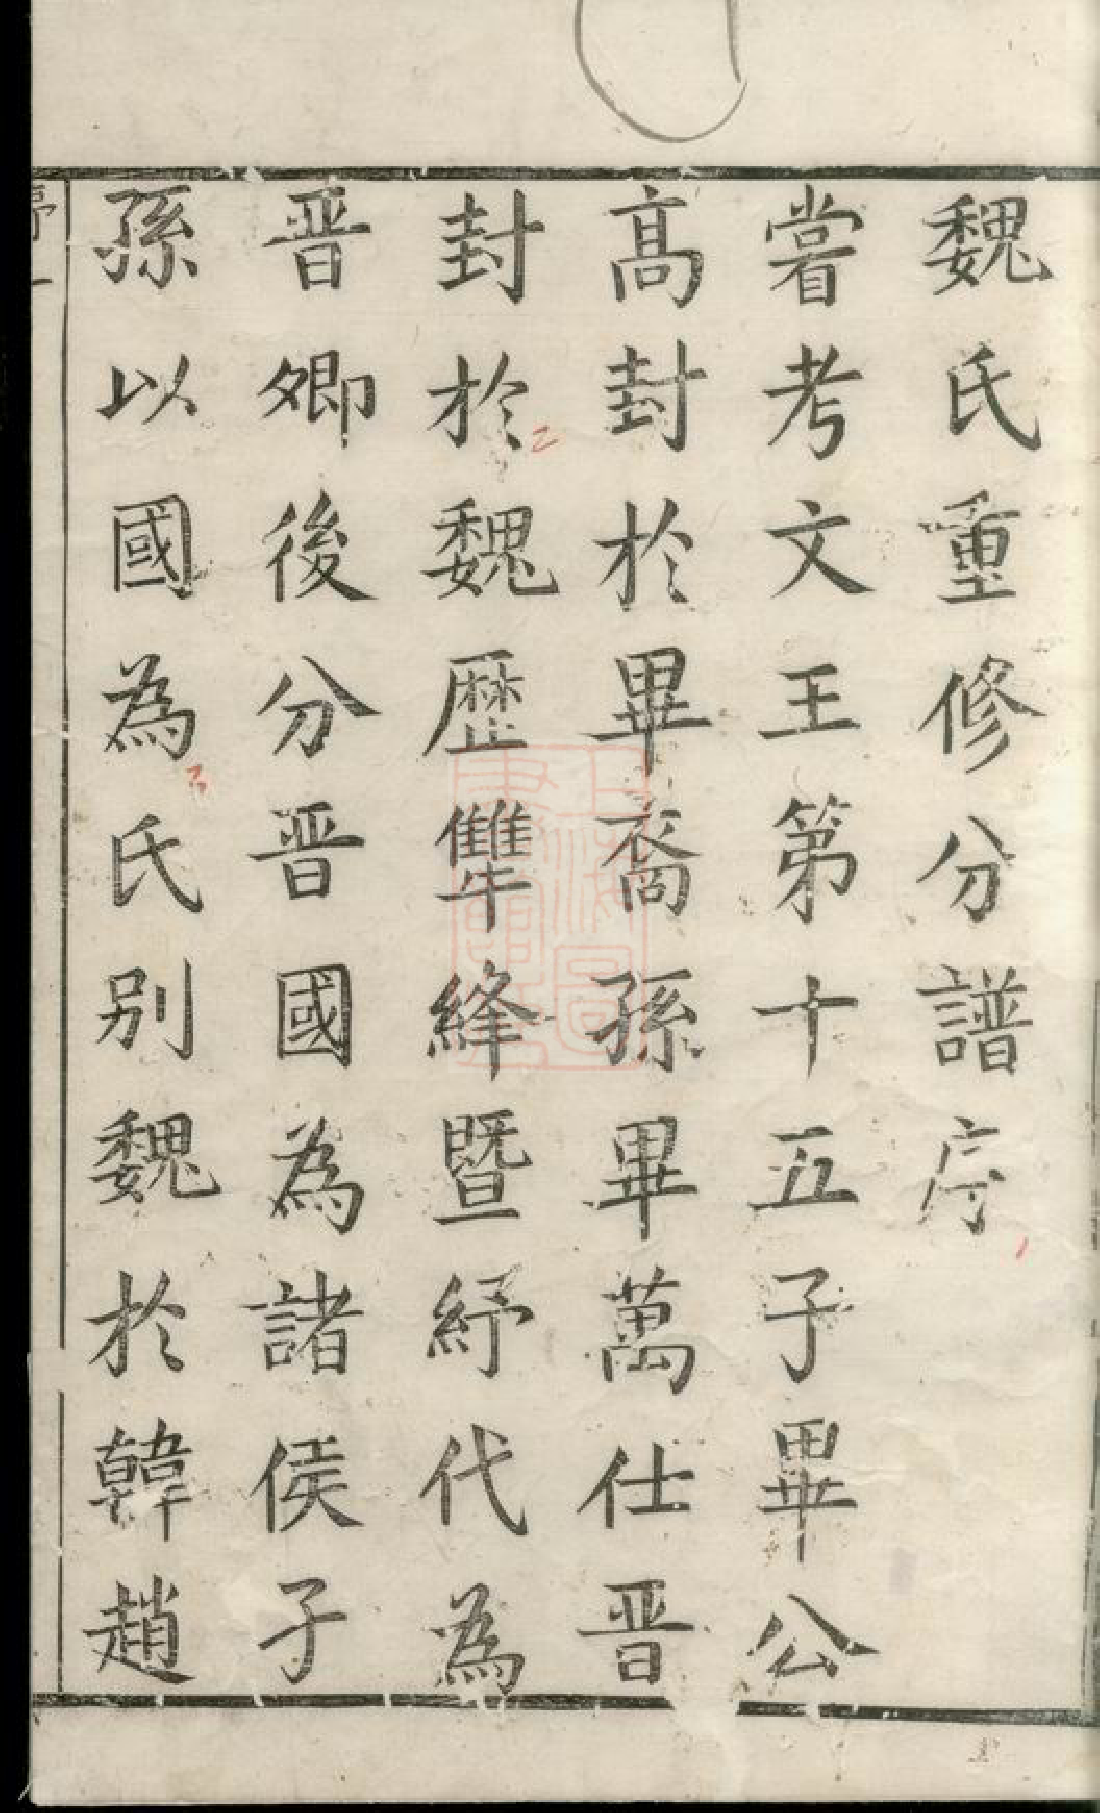 魏氏重修分譜序
嘗考文王第十五子畢公
髙封於畢裔孫畢萬仕晋
封於魏歴犨絳暨紓代為
晋卿後分晋國為諸侯子
孫以國為氏别魏於韓趙